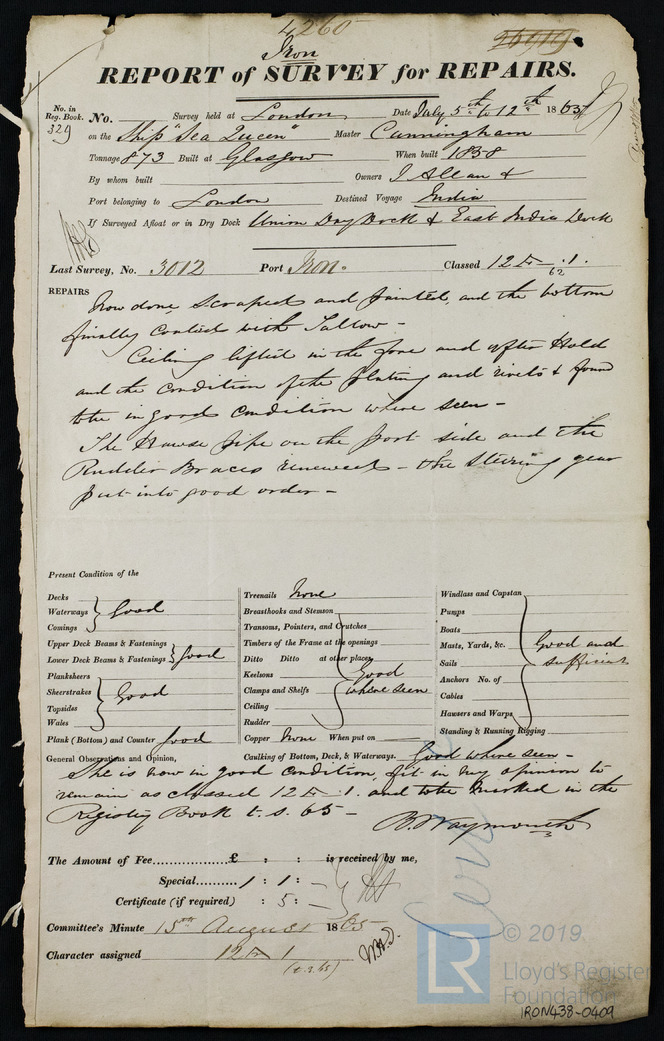 4260
26919
Iron
REPORT of SURVEY for REPAIRS.
No. in Reg. Book. 329 No. Survey held at London Date July 5th to 12th 1865
on the Ship "Sea Queen" Master Cunningham
Tonnage 873 Built at Glasgow When built 1858
By whom built Owners J Allan &
Port belonging to London Destined Voyage India
If Surveyed Afloat or in Dry Dock Union Dry Dock & East India Dock
Last Survey, No. 3012 Port Iron. Classed 12 A 1.
62
REPAIRS Now done, Scraped and painted, and the bottom
finally coated with Tallow -
Ceiling lifted in the fore and after Hold
and the condition of the plating and rivets & found
to be in good condition where seen -
The Hawse pipe on the port side and the
Rudder Braces renewed - the Steering gear
put into good order -
Present Condition of the
Decks
Waterways
Comings
Good
Upper Deck Beams & Fastenings
Lower Deck Beams & Fastenings
Good
Planksheers
Sheerstrakes
Topsides
Wales
Good
Plank (Bottom) and Counter Good
Treenails None
Breasthooks and Stemson
Transoms, Pointers, and Crutches
Timbers of the Frame at the openings
Ditto Ditto at other places
Keelsons
Clamps and Shelfs
Ceiling
Rudder
Good
where seen
Copper None When put on
Windlass and Capstan
Pumps
Boats
Masts, Yards, &c.
Sails
Anchors No. of
Cables
Hawsers and Warps
Standing & Running Rigging
Good and
sufficient
General Observations and Opinion, Caulking of Bottom, Deck, & Waterways. Good where seen -
She is now in good condition, fit in my opinion to
remain as classed 12 A 1. and to be marked in the
Registry Book t.s. 65 -
B. Waymouth
The Amount of Fee £ : : is received by me,
Special 1 : 1 : -
Certificate (if required) : 5 : -
Committee's Minute 15th August 1865
Character assigned 12 A 1
(t.s. 65)
Iron
LR
© 2019
Lloyd's Register
Foundation
IRON438-0409